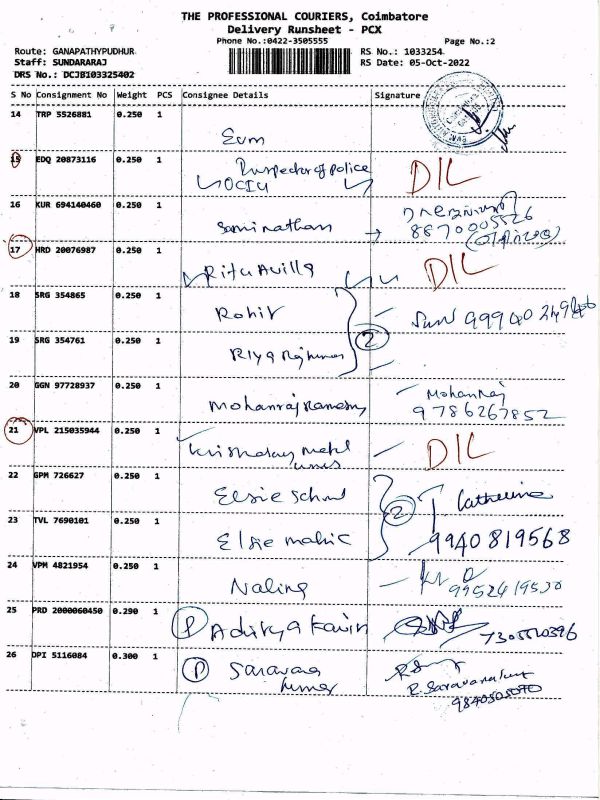 THE PROFESSIONAL COURIERS, Coimbatore
Delivery Runsheet - PCX
Phone No.:0422-3505555 Page No.:2
Route: GANAPATHYPUDHUR RS No.: 1033254
Staff: SUNDARARAJ RS Date: 05-Oct-2022
DRS No.: DCJB103325402
S No Consignment No Weight PCS Consignee Details Signature
14 TRP 5526881 0.250 1
Evm
15 EDQ 20873116 0.250 1
Inspector of police DIL
OCIU
16 KUR 694140460 0.250 1
Saminathan 8870005526
17 HRD 20076987 0.250 1
Ritu Avilla DIL
18 SRG 354865 0.250 1
Rohit
19 SRG 354761 0.250 1 2
Riya Rajkumar
20 GGN 97728937 0.250 1
Mohanraj Ramasamy Mohanraj
9786267852
21 VPL 215035944 0.250 1
DIL
22 GPM 726627 0.250 1
Elsie School 2 Catherine
23 TVL 7690101 0.250 1
Elsie matric 9940819568
24 VPM 4821954 0.250 1
Nalina
25 PRD 2000060450 0.290 1
P Aditya Kavin
26 DPI 5116084 0.300 1
P Saravana
kumar R. Saravanakumar